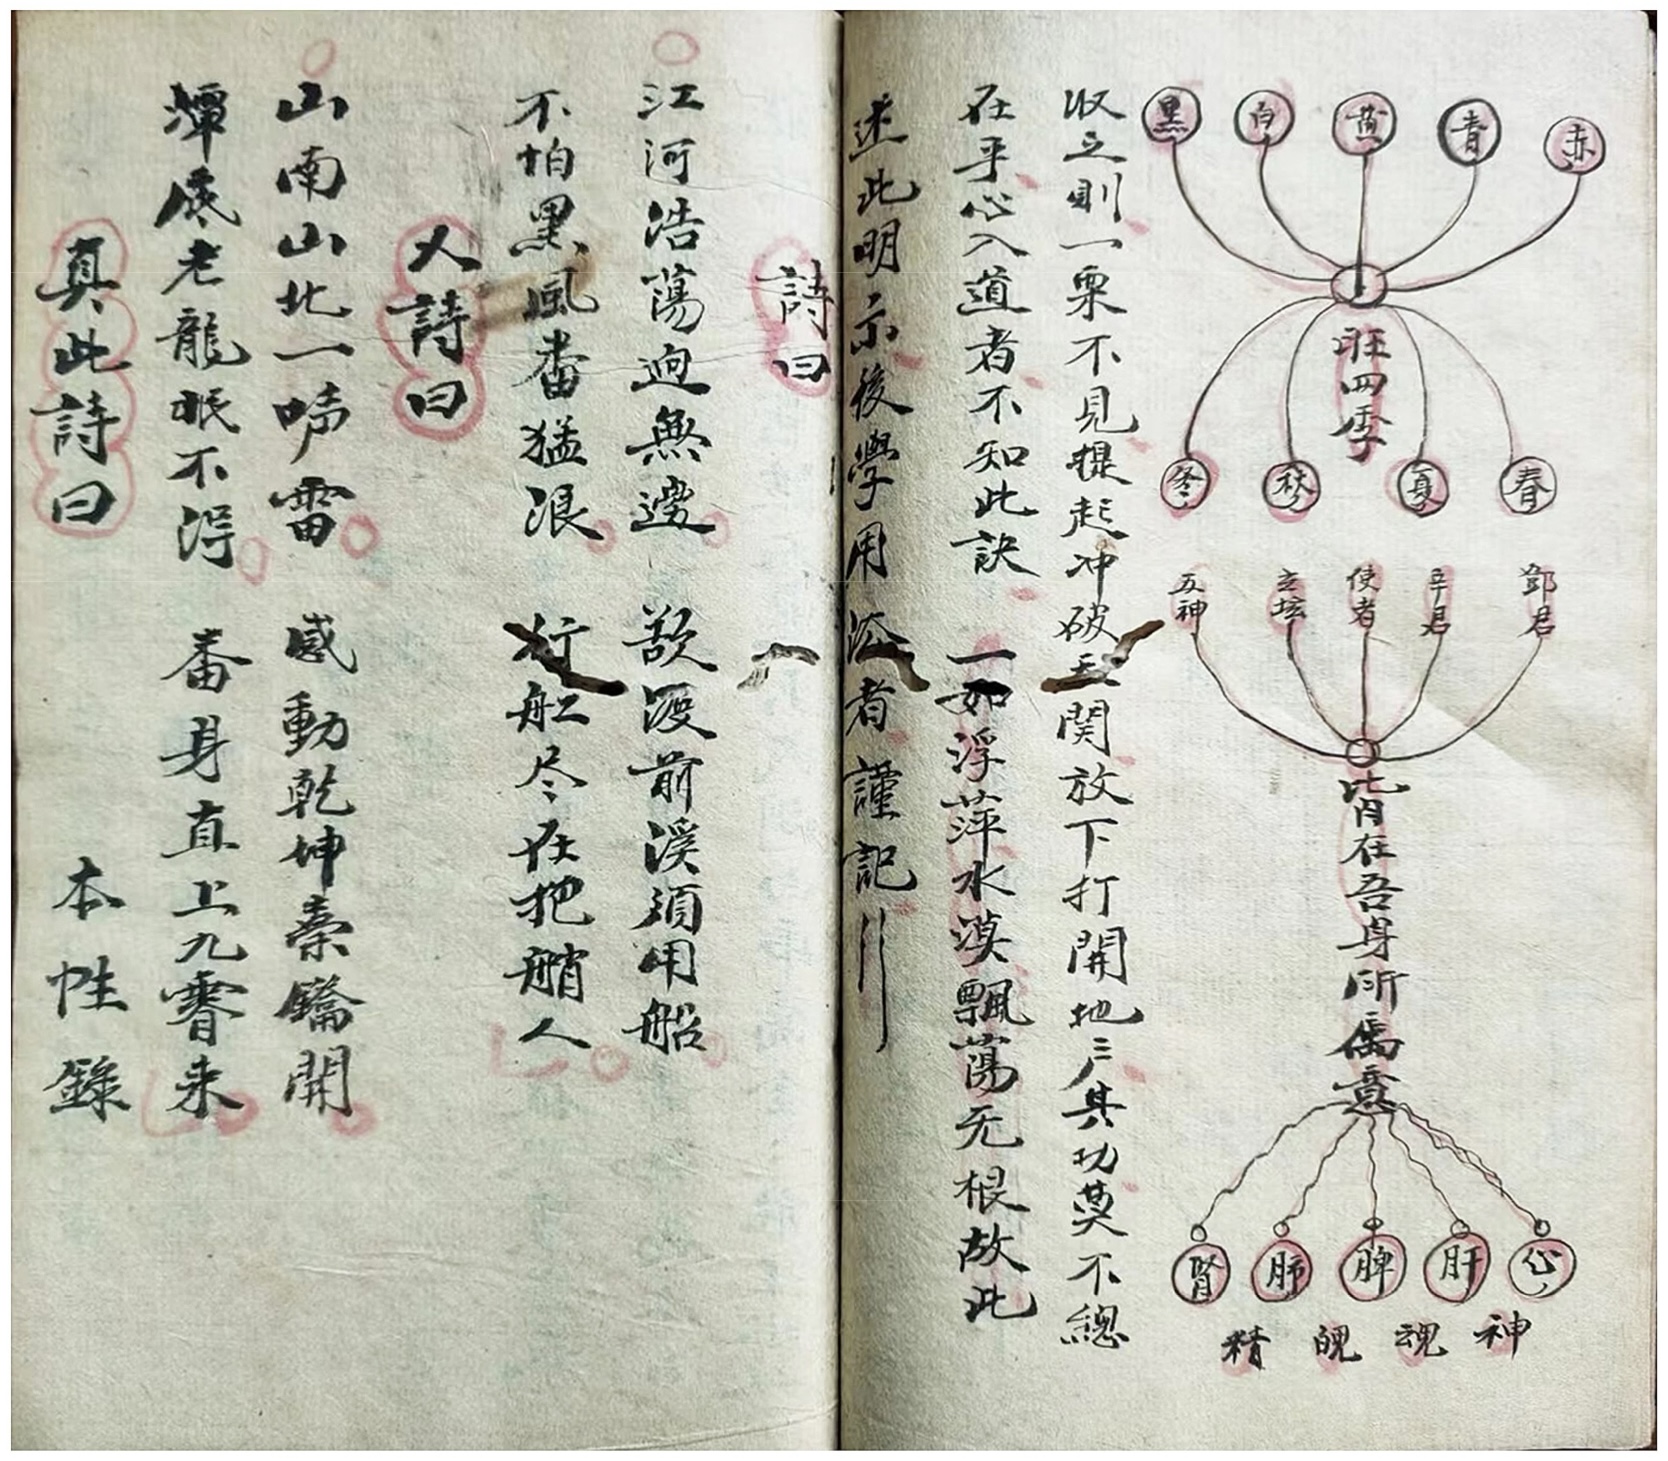 赤 青 黄 白 黑
旺四季
春 夏 秋 冬
鄧君 辛君 使者 立坛 五神
皆在吾身所為意
心 肝 脾 肺 腎
神 魂 魄 精
收之則一粟不見提起冲破天関放下打開地户其功莫不總
在乎心入道者不知此訣 一如浮萍水漠飄蕩无根故此
述此明示後學用 者謹記
詩曰
江河浩蕩迥無邊 欲渡前溪須用船
不怕黑風番猛浪 行船尽在把艄人
又詩曰
山南山北一声雷 感動乾坤橐鑰開
潭底老龍眠不 番身直上九霄来
真此詩曰 本性錄